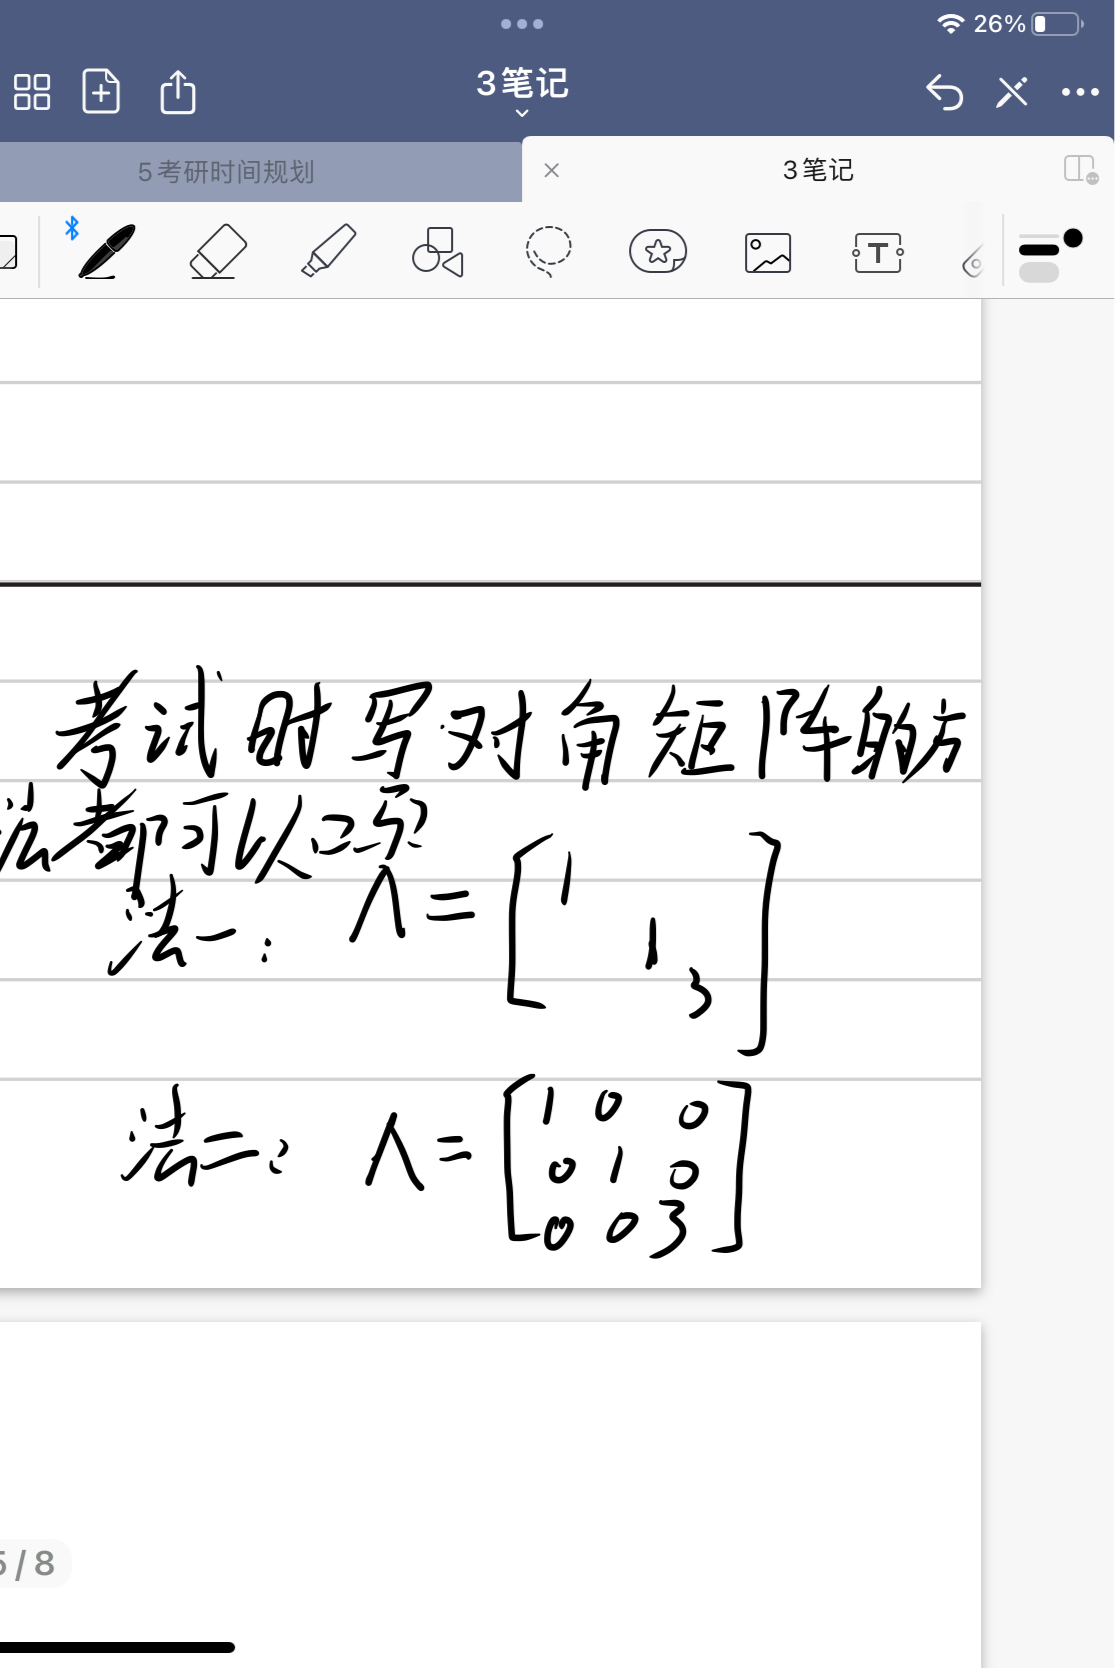 26%
3笔记
5考研时间规划
3笔记
T
考试时写对角矩阵的方
法都可以吗?
法一: Λ = [1
1
3]
法二: Λ = [1 0 0
0 1 0
0 0 3]
5/8